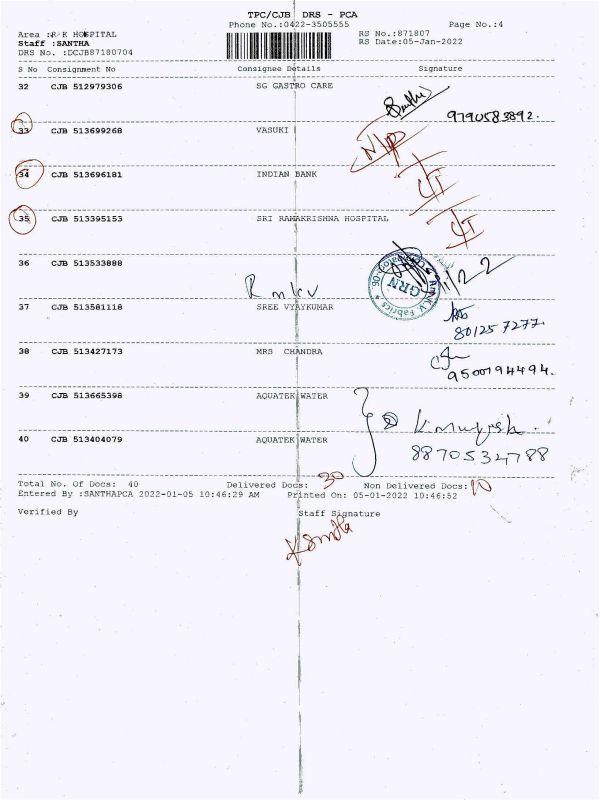 TPC/CJB DRS - PCA
Phone No.:0422-3505555 Page No.:4
Area :R K HOSPITAL RS No.:871807
Staff :SANTHA RS Date:05-Jan-2022
DRS No. :DCJB87180704
S No Consignment No Consignee Details Signature
32 CJB 512979306 SG GASTRO CARE
9790583892.
33 CJB 513699268 VASUKI
N/P
34 CJB 513696181 INDIAN BANK
35 CJB 513395153 SRI RAMAKRISHNA HOSPITAL
36 CJB 513533888
GRN
Fabrics
Rmkv
37 CJB 513581118 SREE VYAYKUMAR
801257277.
38 CJB 513427173 MRS CHANDRA
9500194494.
39 CJB 513665398 AQUATEK WATER
40 CJB 513404079 AQUATEK WATER
8870534788
Total No. Of Docs: 40 Delivered Docs: 30 Non Delivered Docs: 10
Entered By :SANTHAPCA 2022-01-05 10:46:29 AM Printed On: 05-01-2022 10:46:52
Verified By Staff Signature